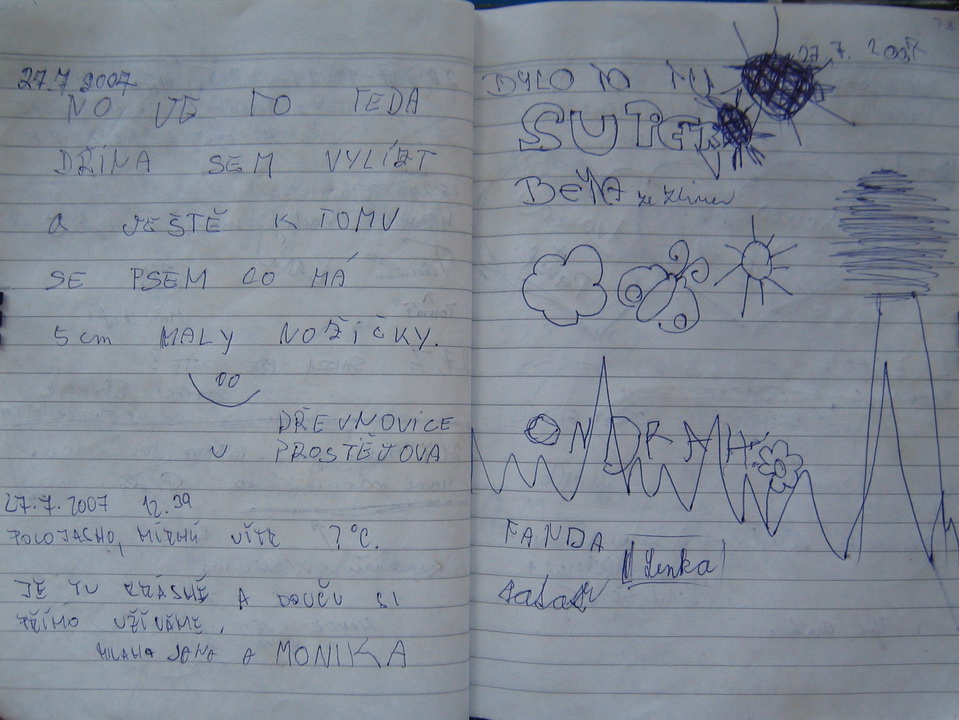 27.7.2007
NO JE TO TEDA
DŘINA SEM VYLÍZT
A JEŠTĚ K TOMU
SE PSEM CO MÁ
5 cm MALY NOŽIČKY.
DŘEVNOVICE
U PROSTĚJOVA
27.7.2007 12.39
POLOJASNO, MÍRNÝ VÍTR 7°C.
JE TU KRÁSNĚ A DOUČU SI
UŽÍVÁME,
MILAHA JANA A MONIKA
27.7. 2007
BYLO TO TU
SUPER
BEŇA ze
ONDRAH
FANDA
Lenka